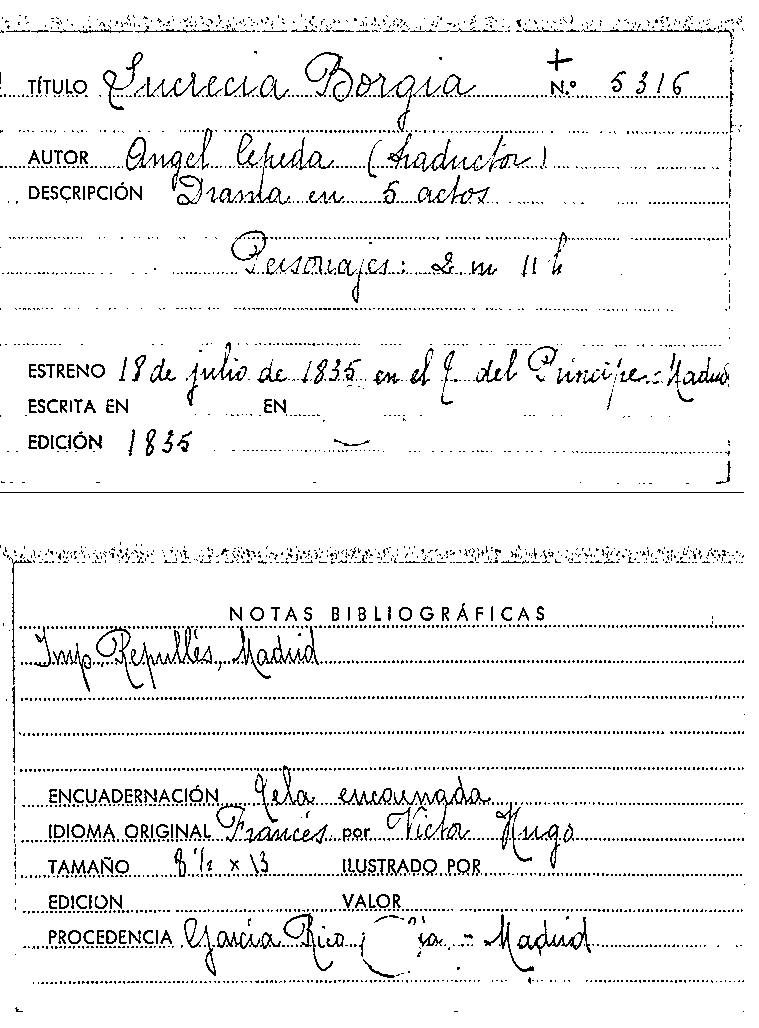 +
TÍTULO Lucrecia Borgia N.º 5316
AUTOR Angel Cepeda (traductor)
DESCRIPCIÓN Drama en 5 actos
Personajes: 2 m 11 h
ESTRENO 18 de julio de 1835 en el T. del Príncipe.=Madrid
ESCRITA EN EN
EDICIÓN 1835
NOTAS BIBLIOGRÁFICAS
Imp. Repullés, Madrid
ENCUADERNACIÓN Tela encarnada
IDIOMA ORIGINAL Francés por Victor Hugo
TAMAÑO 8 ½ x 13 ILUSTRADO POR
EDICION VALOR
PROCEDENCIA García Rico y Cía. - Madrid